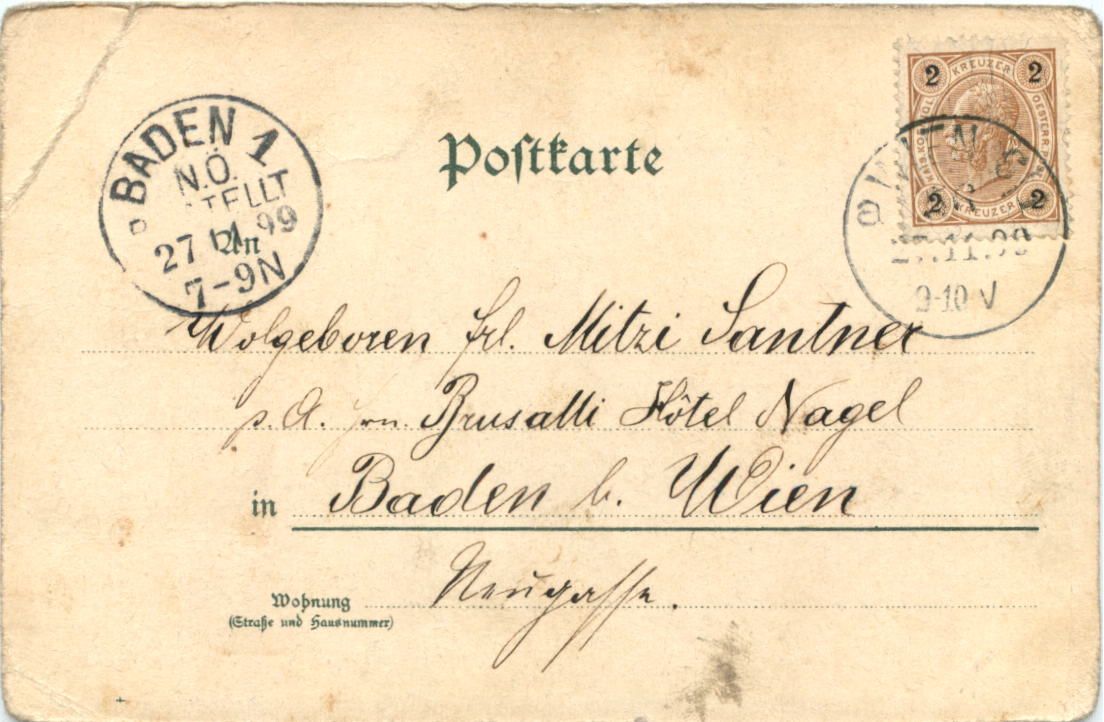 Postkarte
2 KREUZER 2
2 KREUZER 2
BADEN 1
N.Ö.
27 99
7-9N
WIEN
27.11.99
9-10 V
An
Wolgeboren Frl. Mitzi Santner
p. A. Brusatti Hôtel Nagel
in Baden b. Wien
Neugasse.
Wohnung
(Straße und Hausnummer)